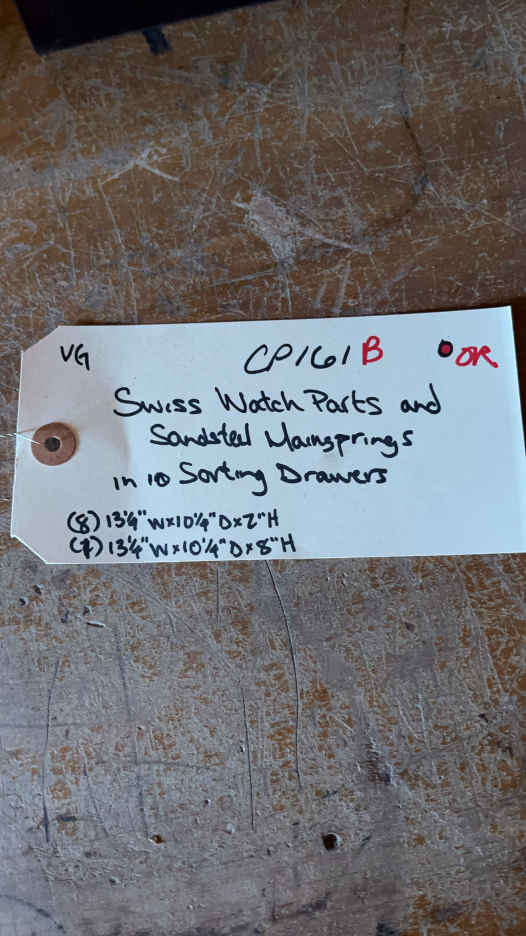 VG CP161B OR
Swiss Watch Parts and
Sandsteel Mainsprings
in 10 Sorting Drawers
(8) 13¼"W x 10¼"D x 2"H
13¼"W x 10¼"D x 8"H